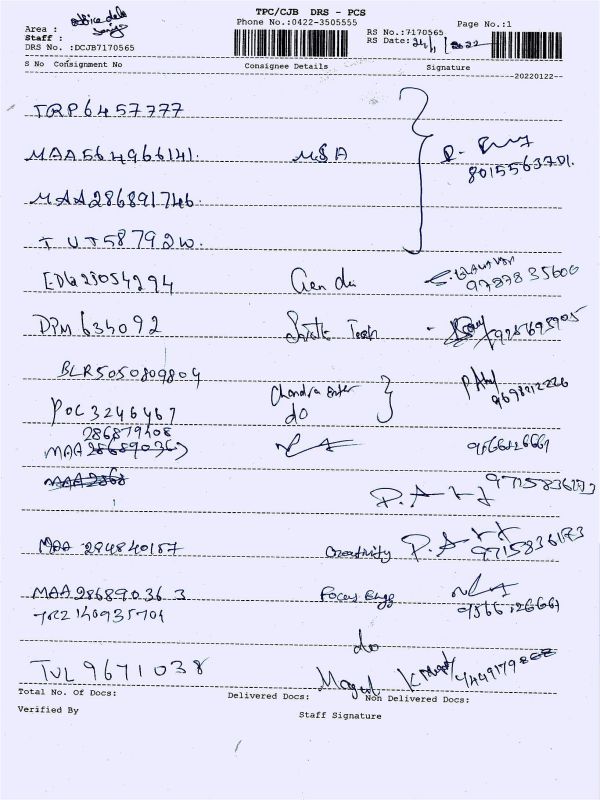 TPC/CJB DRS - PCS
Phone No.:0422-3505555
Page No.:1
Area : office
Staff :
DRS No. :DCJB7170565
RS No.:7170565
RS Date: 24/1/2022
S No Consignment No Consignee Details Signature
20220122
TRP6457777
MAA564966141. MSA
8015563701.
MAA286891746
TUT58792W.
EDW23054294
9787835600
DPM 634092 Tech
925695905
BLR5050809804 Chandra Enter
9698212226
POC3246467 do
286879408
MAA 286890363 9566126661
MAA2868
9715836173
MAA 284840157 Creativity
9715836173
MAA286890363 Focus Engg
9566126661
TRZ 140935704
do
TVL 9671038
Total No. Of Docs: Delivered Docs: Non Delivered Docs:
Verified By Staff Signature